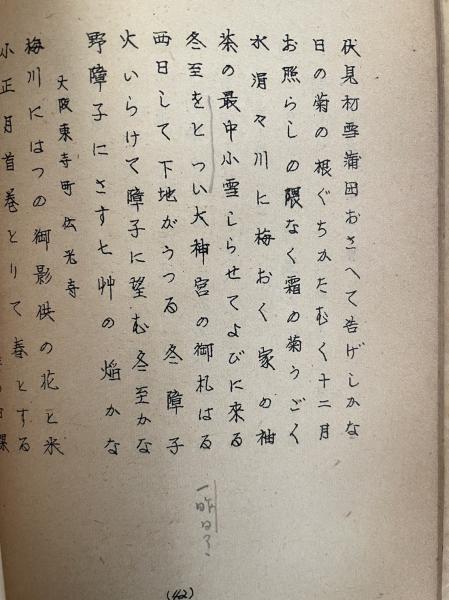 伏見村雪蒲団おさへて告げしかな
日の菊の根ぐちかたむく十二月
お照らしの隈なく霜の菊うごく
水涓々川に梅おく家の袖
茶の最中小雪しらせてよびに來る
冬至をとつい大神宮の御札はる
西日して下地がうつる冬障子
火いらけて障子に望む冬至かな
野障子にさす七艸の焔かな
大阪東寺町伝光寺
梅川にはつの御影供の花と米
小正月首巻とりて春とする
一昨日
(42)